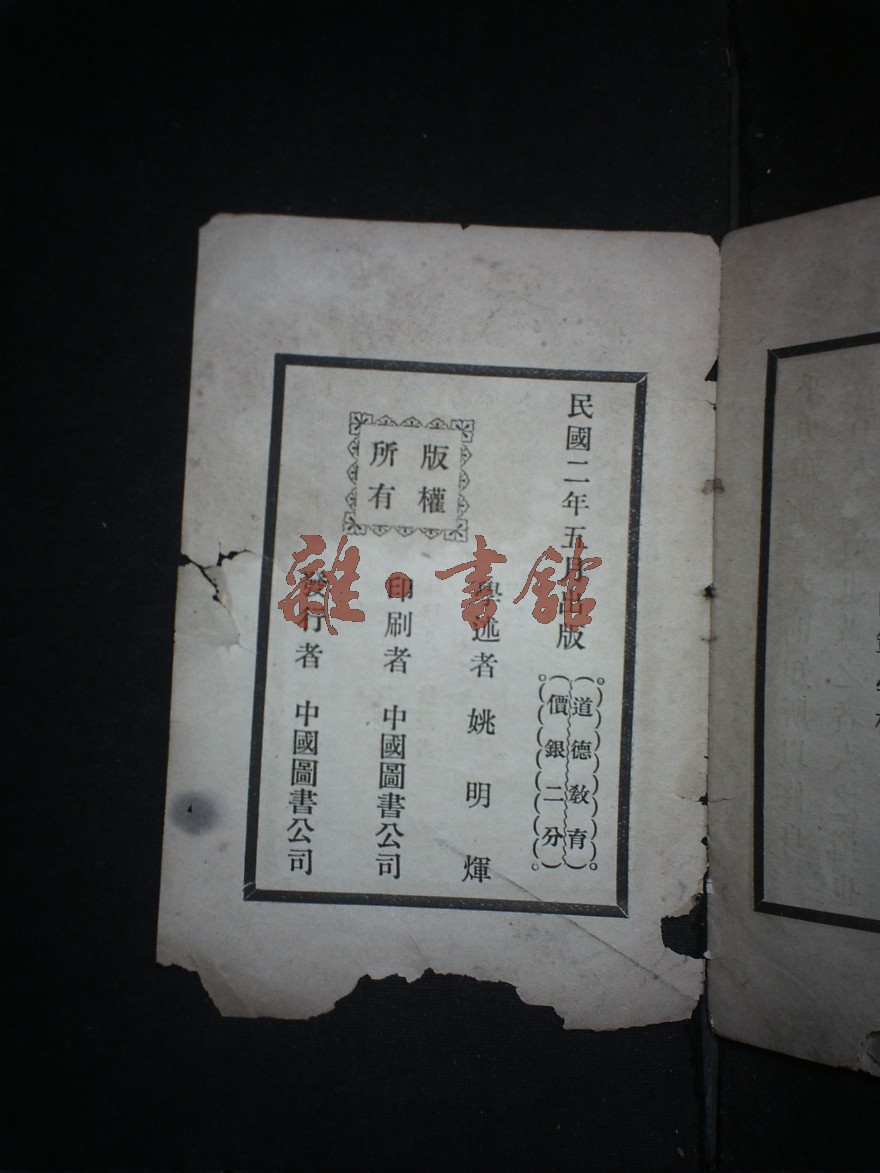 民國二年五月出版
道德教育
價銀二分
述者 姚明煇
版權
所有
印刷者 中國圖書公司
發行者 中國圖書公司
雜·書館